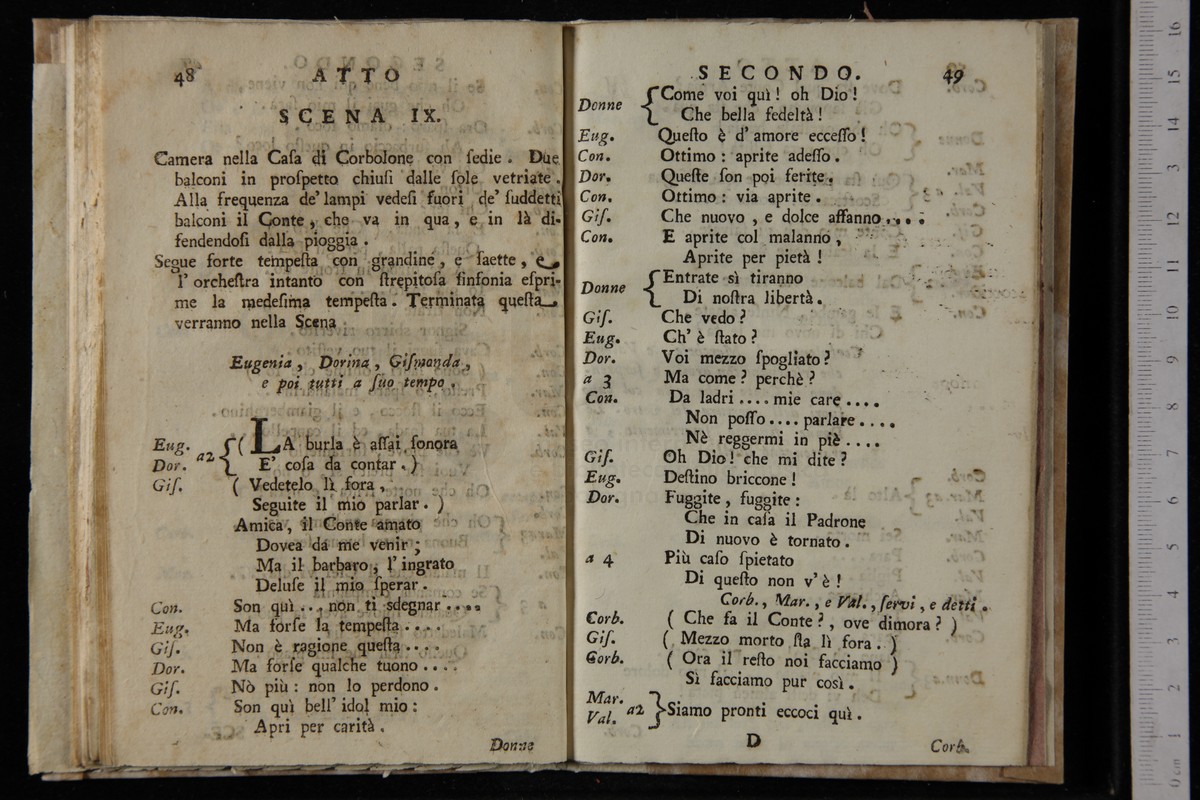 48 ATTO
SCENA IX.
Camera nella Caſa di Corbolone con ſedie. Due
balconi in proſpetto chiuſi dalle ſole vetriate.
Alla frequenza de' lampi vedeſi fuori de' ſuddetti
balconi il Conte, che va in qua, e in là di-
fendendoſi dalla pioggia.
Segue forte tempeſta con grandine, e ſaette, e
l' orcheſtra intanto con ſtrepitoſa ſinfonia eſpri-
me la medeſima tempeſta. Terminata queſta
verranno nella Scena
Eugenia, Dorina, Giſmonda,
e poi tutti a ſuo tempo.
Eug. a2 { ( LA burla è aſſai ſonora
Dor. E' coſa da contar. )
Giſ. ( Vedetelo lì fora,
Seguite il mio parlar. )
Amica, il Conte amato
Dovea da me venir;
Ma il barbaro, l' ingrato
Deluſe il mio ſperar.
Con. Son quì ... non ti sdegnar ....
Eug. Ma forſe la tempeſta ....
Giſ. Non è ragione queſta ....
Dor. Ma forſe qualche tuono ....
Giſ. Nò più: non lo perdono.
Con. Son quì bell' idol mio:
Apri per carità.
Donne
SECONDO. 49
Donne { Come voi quì! oh Dio!
Che bella fedeltà!
Eug. Queſto è d' amore ecceſſo!
Con. Ottimo: aprite adeſſo.
Dor. Queſte ſon poi ferite.
Con. Ottimo: via aprite.
Giſ. Che nuovo, e dolce affanno ....
Con. E aprite col malanno,
Aprite per pietà!
Donne { Entrate sì tiranno
Di noſtra libertà.
Giſ. Che vedo?
Eug. Ch' è ſtato?
Dor. Voi mezzo ſpogliato?
a 3 Ma come? perchè?
Con. Da ladri .... mie care ....
Non poſſo .... parlare ....
Nè reggermi in piè ....
Giſ. Oh Dio! che mi dite?
Eug. Deſtino briccone!
Dor. Fuggite, fuggite:
Che in caſa il Padrone
Di nuovo è tornato.
a 4 Più caſo ſpietato
Di queſto non v' è!
Corb., Mar., e Val., ſervi, e detti.
Corb. ( Che fa il Conte?, ove dimora? )
Giſ. ( Mezzo morto ſta lì fora. )
Corb. ( Ora il reſto noi facciamo )
Sì facciamo pur così.
Mar. a2 } Siamo pronti eccoci quì.
Val.
D
Corb.